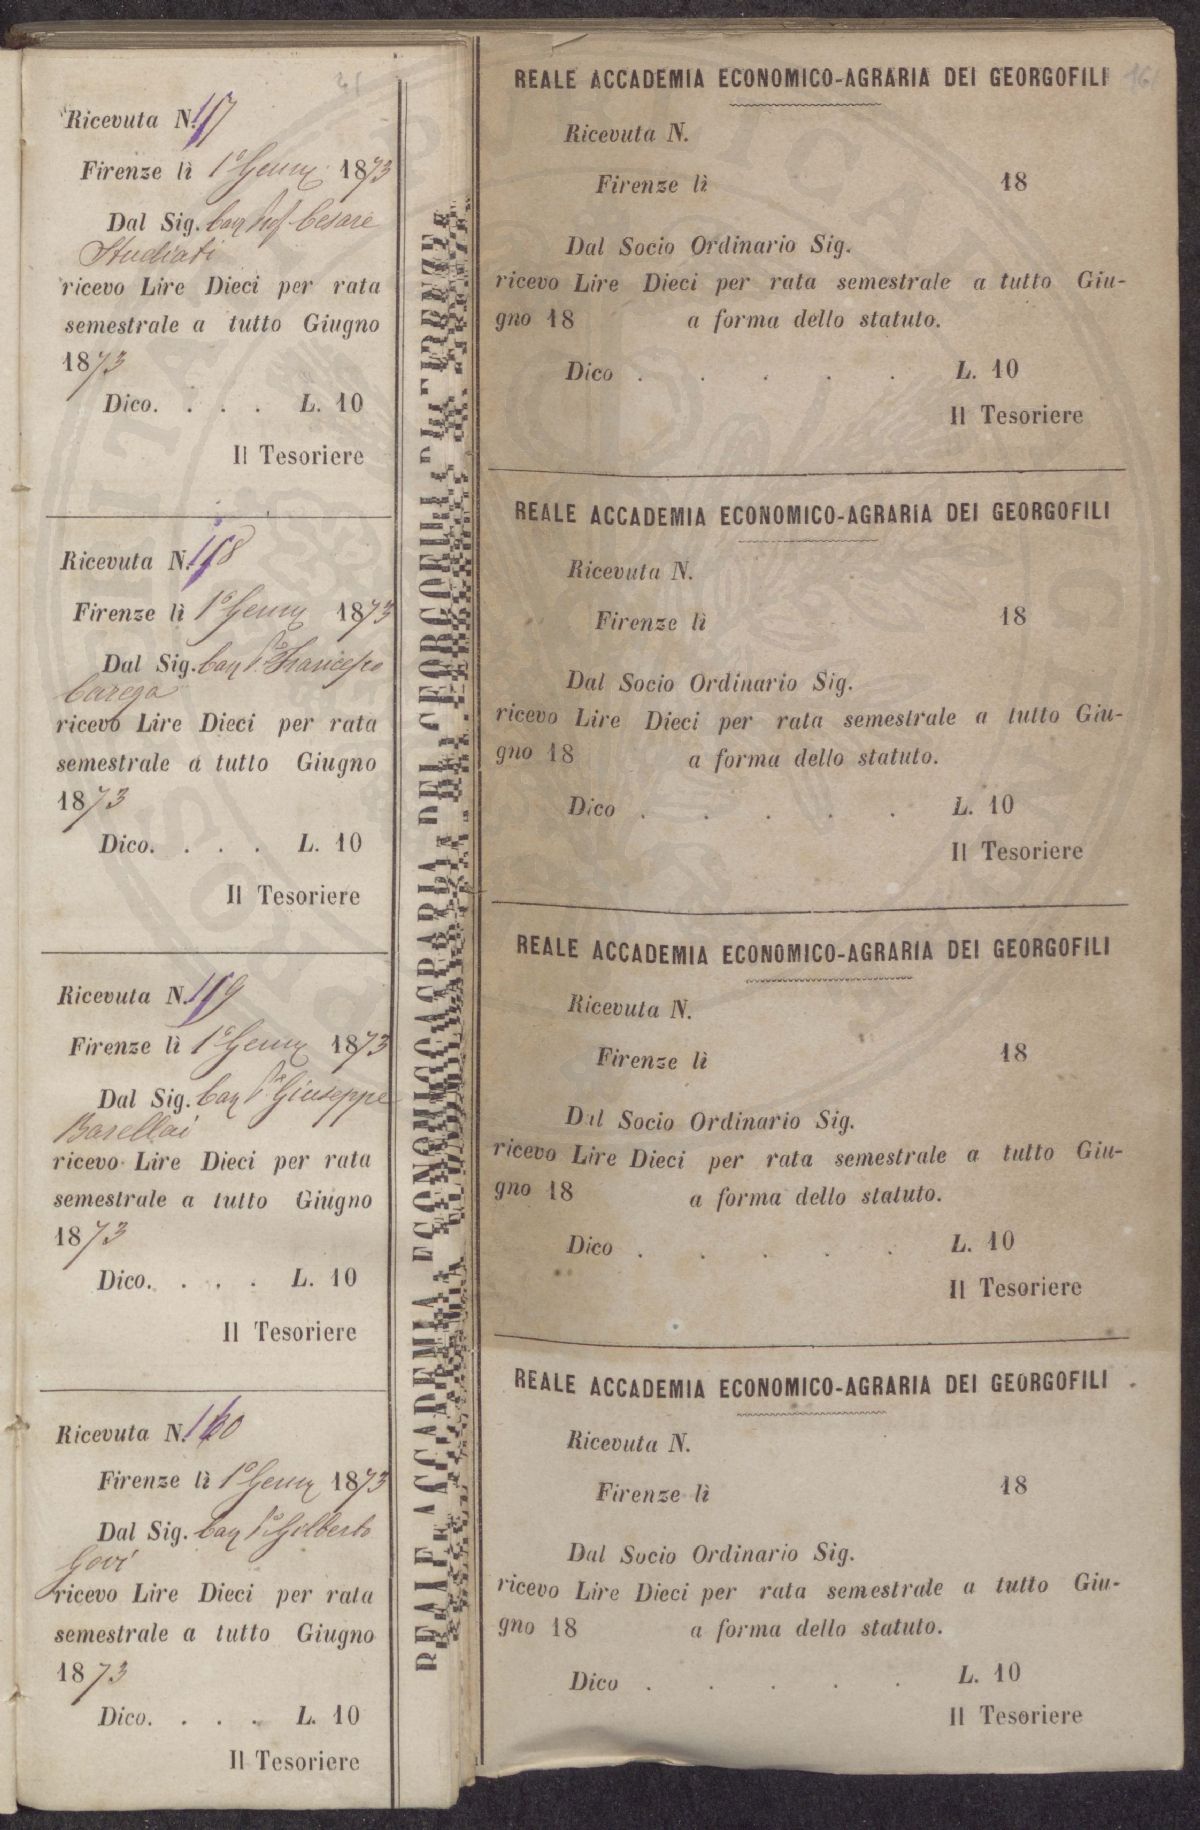 Ricevuta N. 117
Firenze lì 1º Genn 1873
Dal Sig. Cav Prof Cesare
Studiati
ricevo Lire Dieci per rata
semestrale a tutto Giugno
1873
Dico. . . . L. 10
Il Tesoriere
Ricevuta N. 118
Firenze lì 1º Genn 1873
Dal Sig. Cav Francesco
Carega
ricevo Lire Dieci per rata
semestrale a tutto Giugno
1873
Dico. . . . L. 10
Il Tesoriere
Ricevuta N. 119
Firenze lì 1º Genn 1873
Dal Sig. Cav Giuseppe
Barellai
ricevo Lire Dieci per rata
semestrale a tutto Giugno
1873
Dico. . . . L. 10
Il Tesoriere
Ricevuta N.
Firenze lì 1º Genn 1873
Dal Sig. Cav Gilberto
Govi
ricevo Lire Dieci per rata
semestrale a tutto Giugno
1873
Dico. . . . L. 10
Il Tesoriere
REALE ACCADEMIA ECONOMICO-AGRARIA DEI GEORGOFILI DI FIRENZE
REALE ACCADEMIA ECONOMICO-AGRARIA DEI GEORGOFILI
Ricevuta N.
Firenze lì 18
Dal Socio Ordinario Sig.
ricevo Lire Dieci per rata semestrale a tutto Giu-
gno 18 a forma dello statuto.
Dico . . . . . L. 10
Il Tesoriere
REALE ACCADEMIA ECONOMICO-AGRARIA DEI GEORGOFILI
Ricevuta N.
Firenze lì 18
Dal Socio Ordinario Sig.
ricevo Lire Dieci per rata semestrale a tutto Giu-
gno 18 a forma dello statuto.
Dico . . . . . L. 10
Il Tesoriere
REALE ACCADEMIA ECONOMICO-AGRARIA DEI GEORGOFILI
Ricevuta N.
Firenze lì 18
Dal Socio Ordinario Sig.
ricevo Lire Dieci per rata semestrale a tutto Giu-
gno 18 a forma dello statuto.
Dico . . . . . L. 10
Il Tesoriere
REALE ACCADEMIA ECONOMICO-AGRARIA DEI GEORGOFILI
Ricevuta N.
Firenze lì 18
Dal Socio Ordinario Sig.
ricevo Lire Dieci per rata semestrale a tutto Giu-
gno 18 a forma dello statuto.
Dico . . . . . L. 10
Il Tesoriere